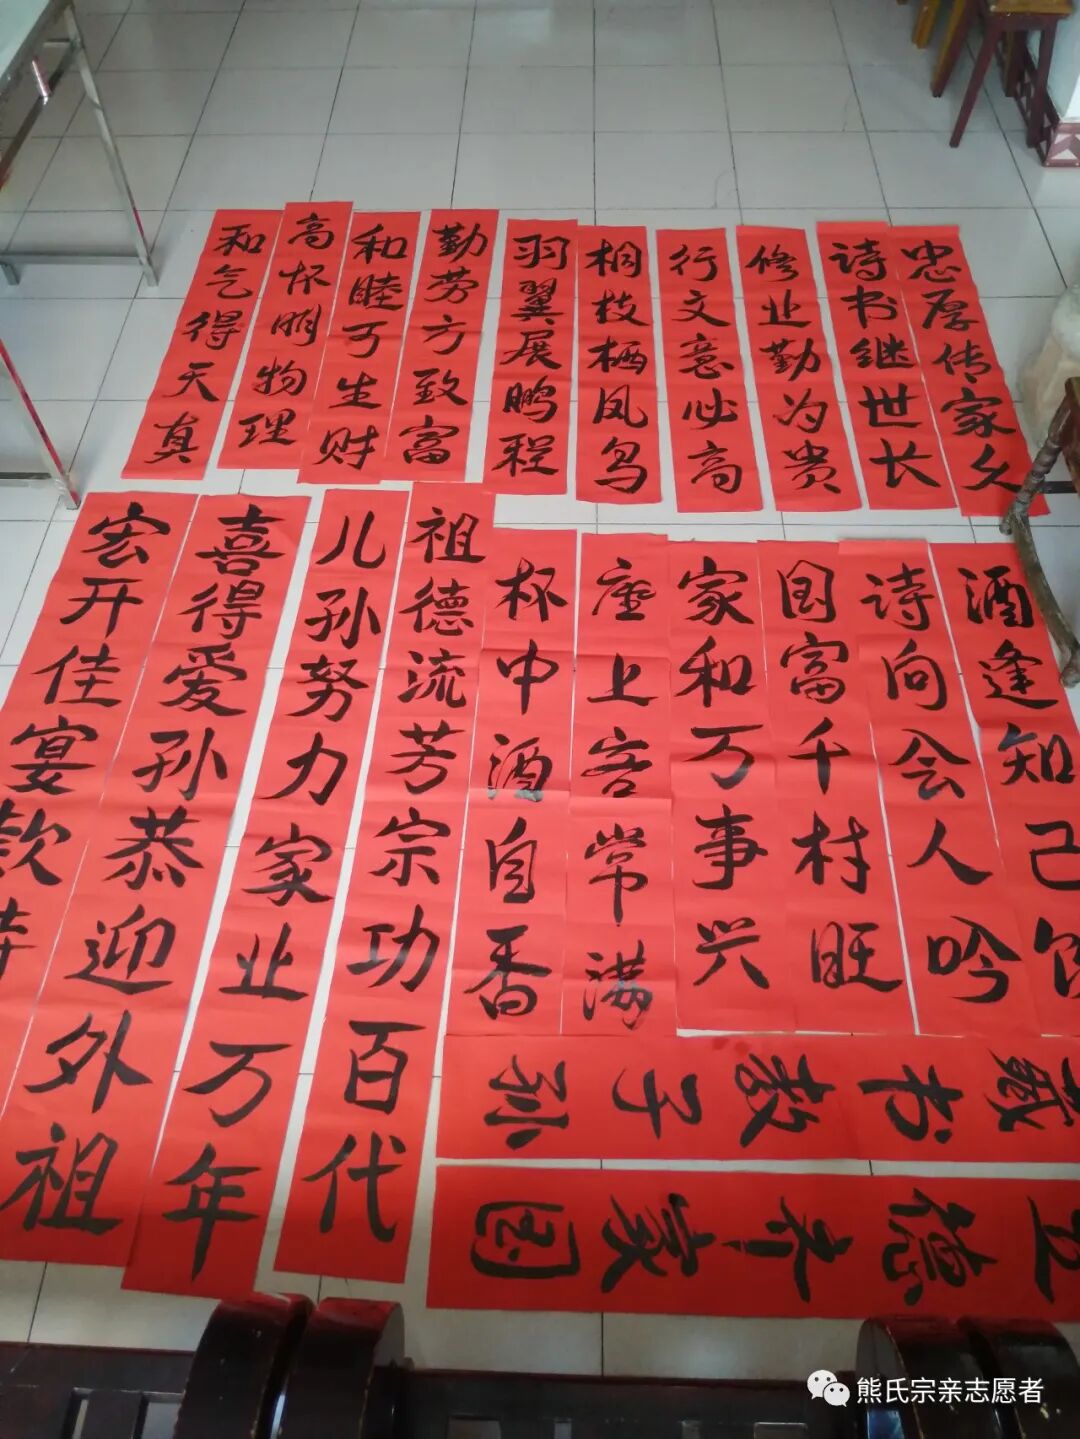 忠厚传家久
诗书继世长
修业勤为贵
行文意必高
桐枝栖凤鸟
羽翼展鹏程
勤劳方致富
和睦可生财
高怀明物理
和气得天真
酒逢知己饮
诗向会人吟
国富千村旺
家和万事兴
座上客常满
杯中酒自香
祖德流芳宗功百代
儿孙努力家业万年
喜得爱孙恭迎外祖
宏开佳宴款
书教子孙
德齐家国
熊氏宗亲志愿者